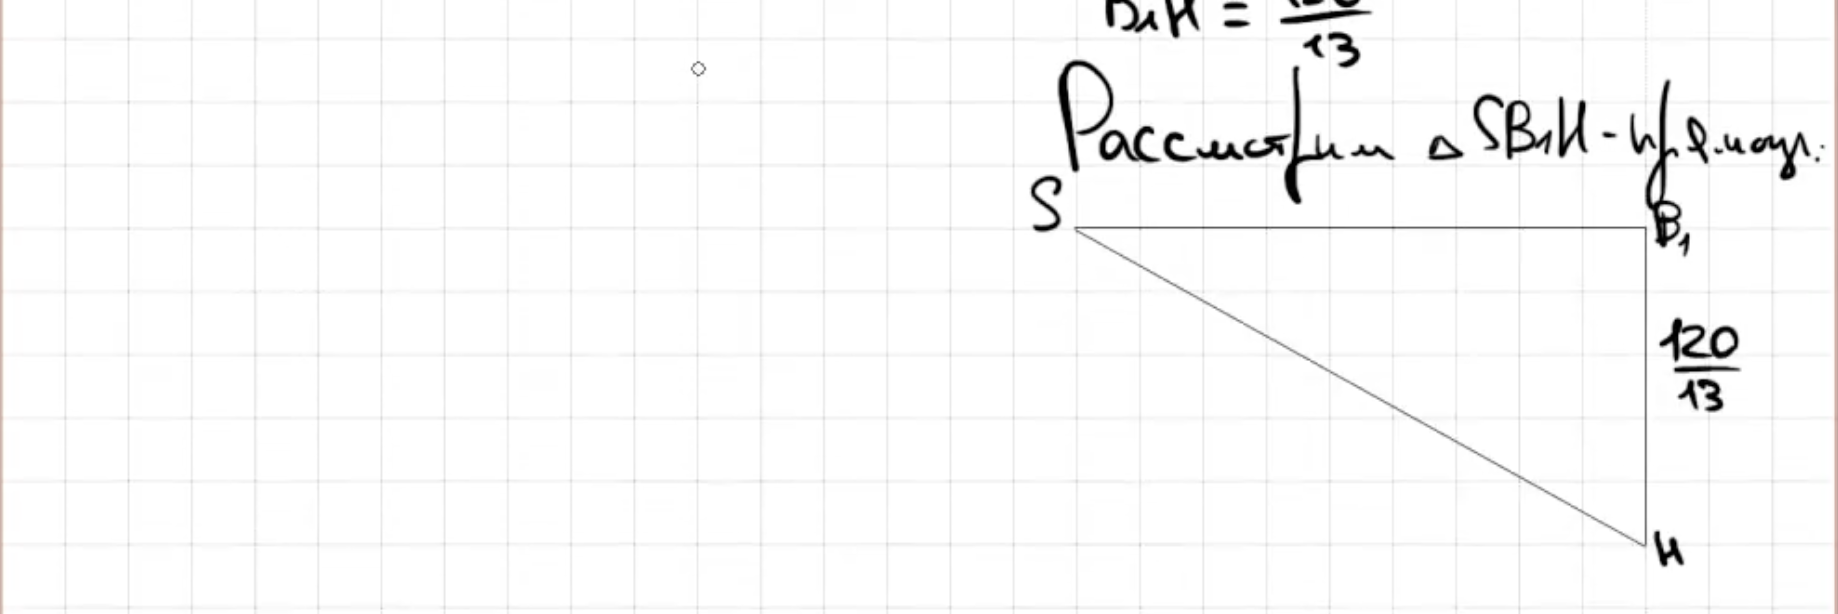 B₁H = 120/13
Рассмотрим △ SB₁H - прямоуг.:
S
B₁
120/13
H